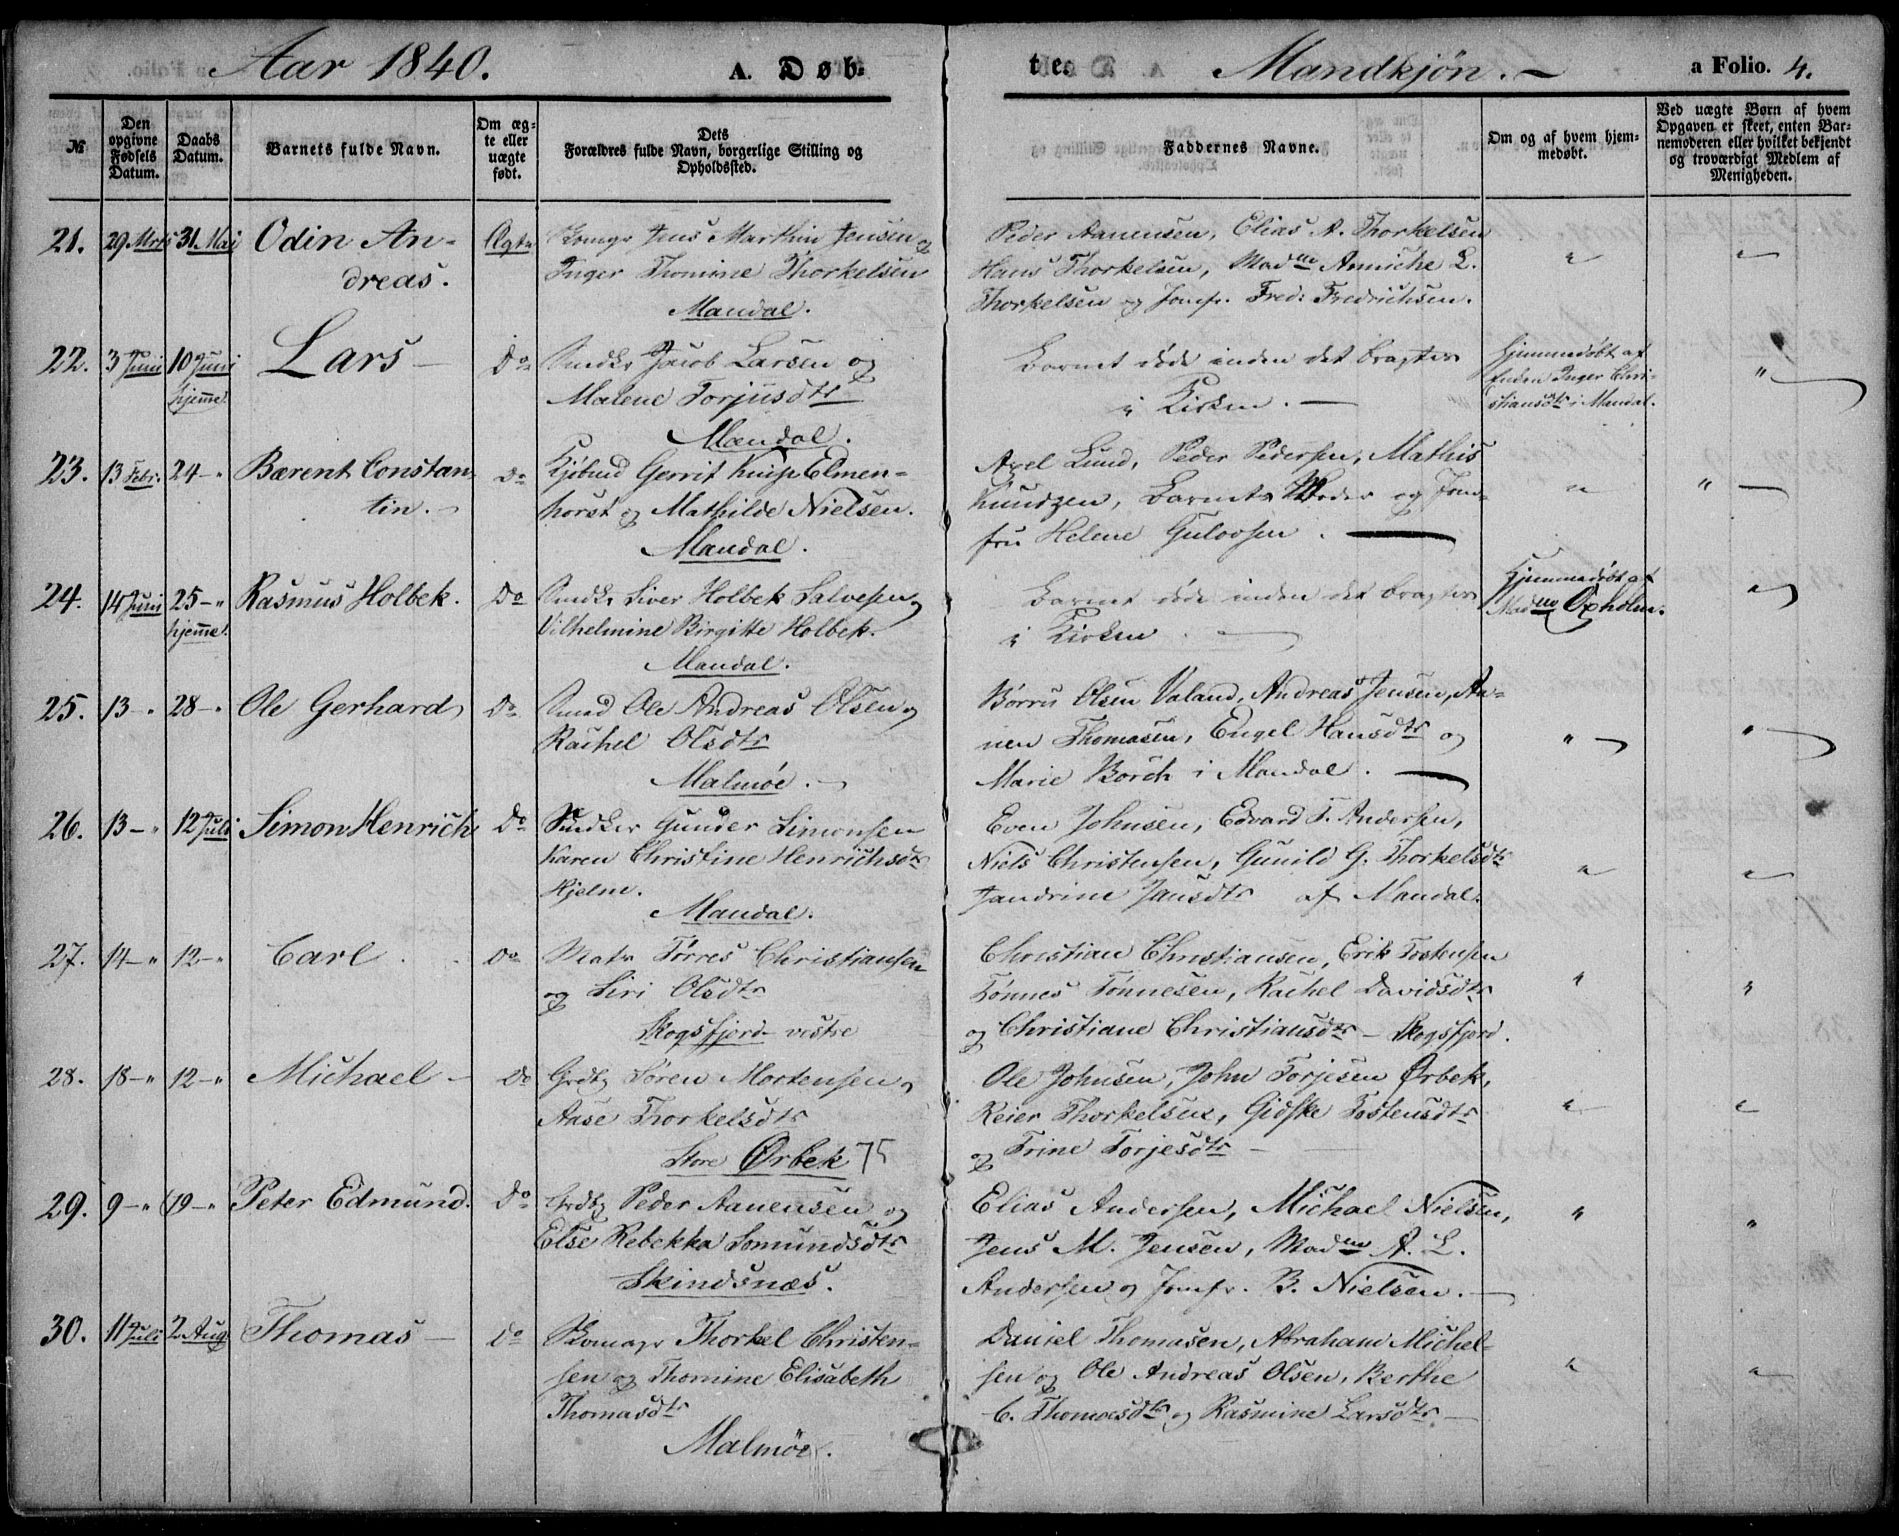 Aar 1840. A. Døb- te. Mandkjøn. a Folio. 4.
№ Den opgivne Fødsels Datum. Daabs Datum. Barnets fulde Navn. Om ægte eller uægte født. Dets Forældres fulde Navn, borgerlige Stilling og Opholdssted. Faddernes Navne. Om og af hvem hjemmedøbt. Ved uægte Børn af hvem Opgaven er skeet, enten Barnemoderen eller hvilket bekjendt og troværdigt Medlem af Menigheden.
21. 29 Mrts 31 Mai Odin An- Ægte Skomgr Jens Marthin Jensen og Peder Aanensen, Elias A. Thorkelsen
dreas. Inger Thomine Thorkelsen Hans Thorkelsen, Madme Anniche L. " "
Mandal. Thorkelsen og Jomfr. Fred: Fredrichsen.
22. 3 Juni 10 Juni Lars Do Smdkr Jacob Larsen og Barnet døde inden det bragtes Hjemmedøbt af
hjeme. Malene Torjusdtr i Kirken. Enken Inger Chri- "
Mandal. stiansdtr i Mandal.
23. 13 Febr. 24 - " Bærent Constan- Do Kjøbmd Gerrit Knip Elmen- Axel Lund, Peder Pedersen, Mathis
tin. horst og Mathilde Nielsen. Knudzen, Barnets Moder og Jom- " "
Mandal. fru Helene Gulovsen.
24. 14 Juni 25 - " Rasmus Holbek. Do Smdkr Siver Holbek Salvesen og Barnet døde inden det bragtes Hjemmedøbt af "
hjeme. Vilhelmine Birgitte Holbek. i Kirken Madme Oxholm.
Mandal.
25. 13 - " 28 - " Ole Gerhard Do Smed Ole Andreas Olsen og Børru Olsen Valand, Andreas Jensen, An-
Rachel Olsdtr nen Thomasen, Engel Hansdtr og " "
Malmøe. Marie Borch i Mandal.
26. 13 - " 12 Juli Simon Henrich Do Smdker Gunder Simonsen Even Johnsen, Edvard T. Andersen,
Karen Christine Henrichsdtr Niels Christensen, Gunild G. Thorkelsdtr " "
Hjelm. Jandrine Jansdtr af Mandal.
Mandal.
27. 14 - " 12 - " Carl Do Matr Tørres Christiansen Christian Christiansen, Erik Tostensen
og Siri Olsdtr Tønnes Tønnesen, Rachel Davidsdtr " "
Skogsfjord vestre og Christiane Christiansdtr - Skogsfjord.
28. 18 - " 12 - " Michael Do Grdbg Søren Mortensen og Ole Johnsen, John Torjesen Ørbek,
Aase Thorkelsdtr Reier Thorkelsen, Gidske Tostensdtr " "
Store Ørbek 75 og Trine Torjesdtr
29. 9 - " 19 - " Peter Edmund. Do Grdbg Peder Aanensen og Elias Andersen, Michael Nielsen,
Else Rebekka Somundsdtr Jens M. Jensen, Madme A. L. " "
Skindsnæs. Andersen og Jomfr. B. Nielsen.
30. 11 Juli 2 Aug Thomas Do Skomagr Thorkel Christen- Daniel Thomasen, Abraham Michel-
sen og Thomine Elisabeth sen og Ole Andreas Olsen, Berthe " "
Thomasdtr C. Thomasdtr og Rasmine Larsdtr
Malmøe.